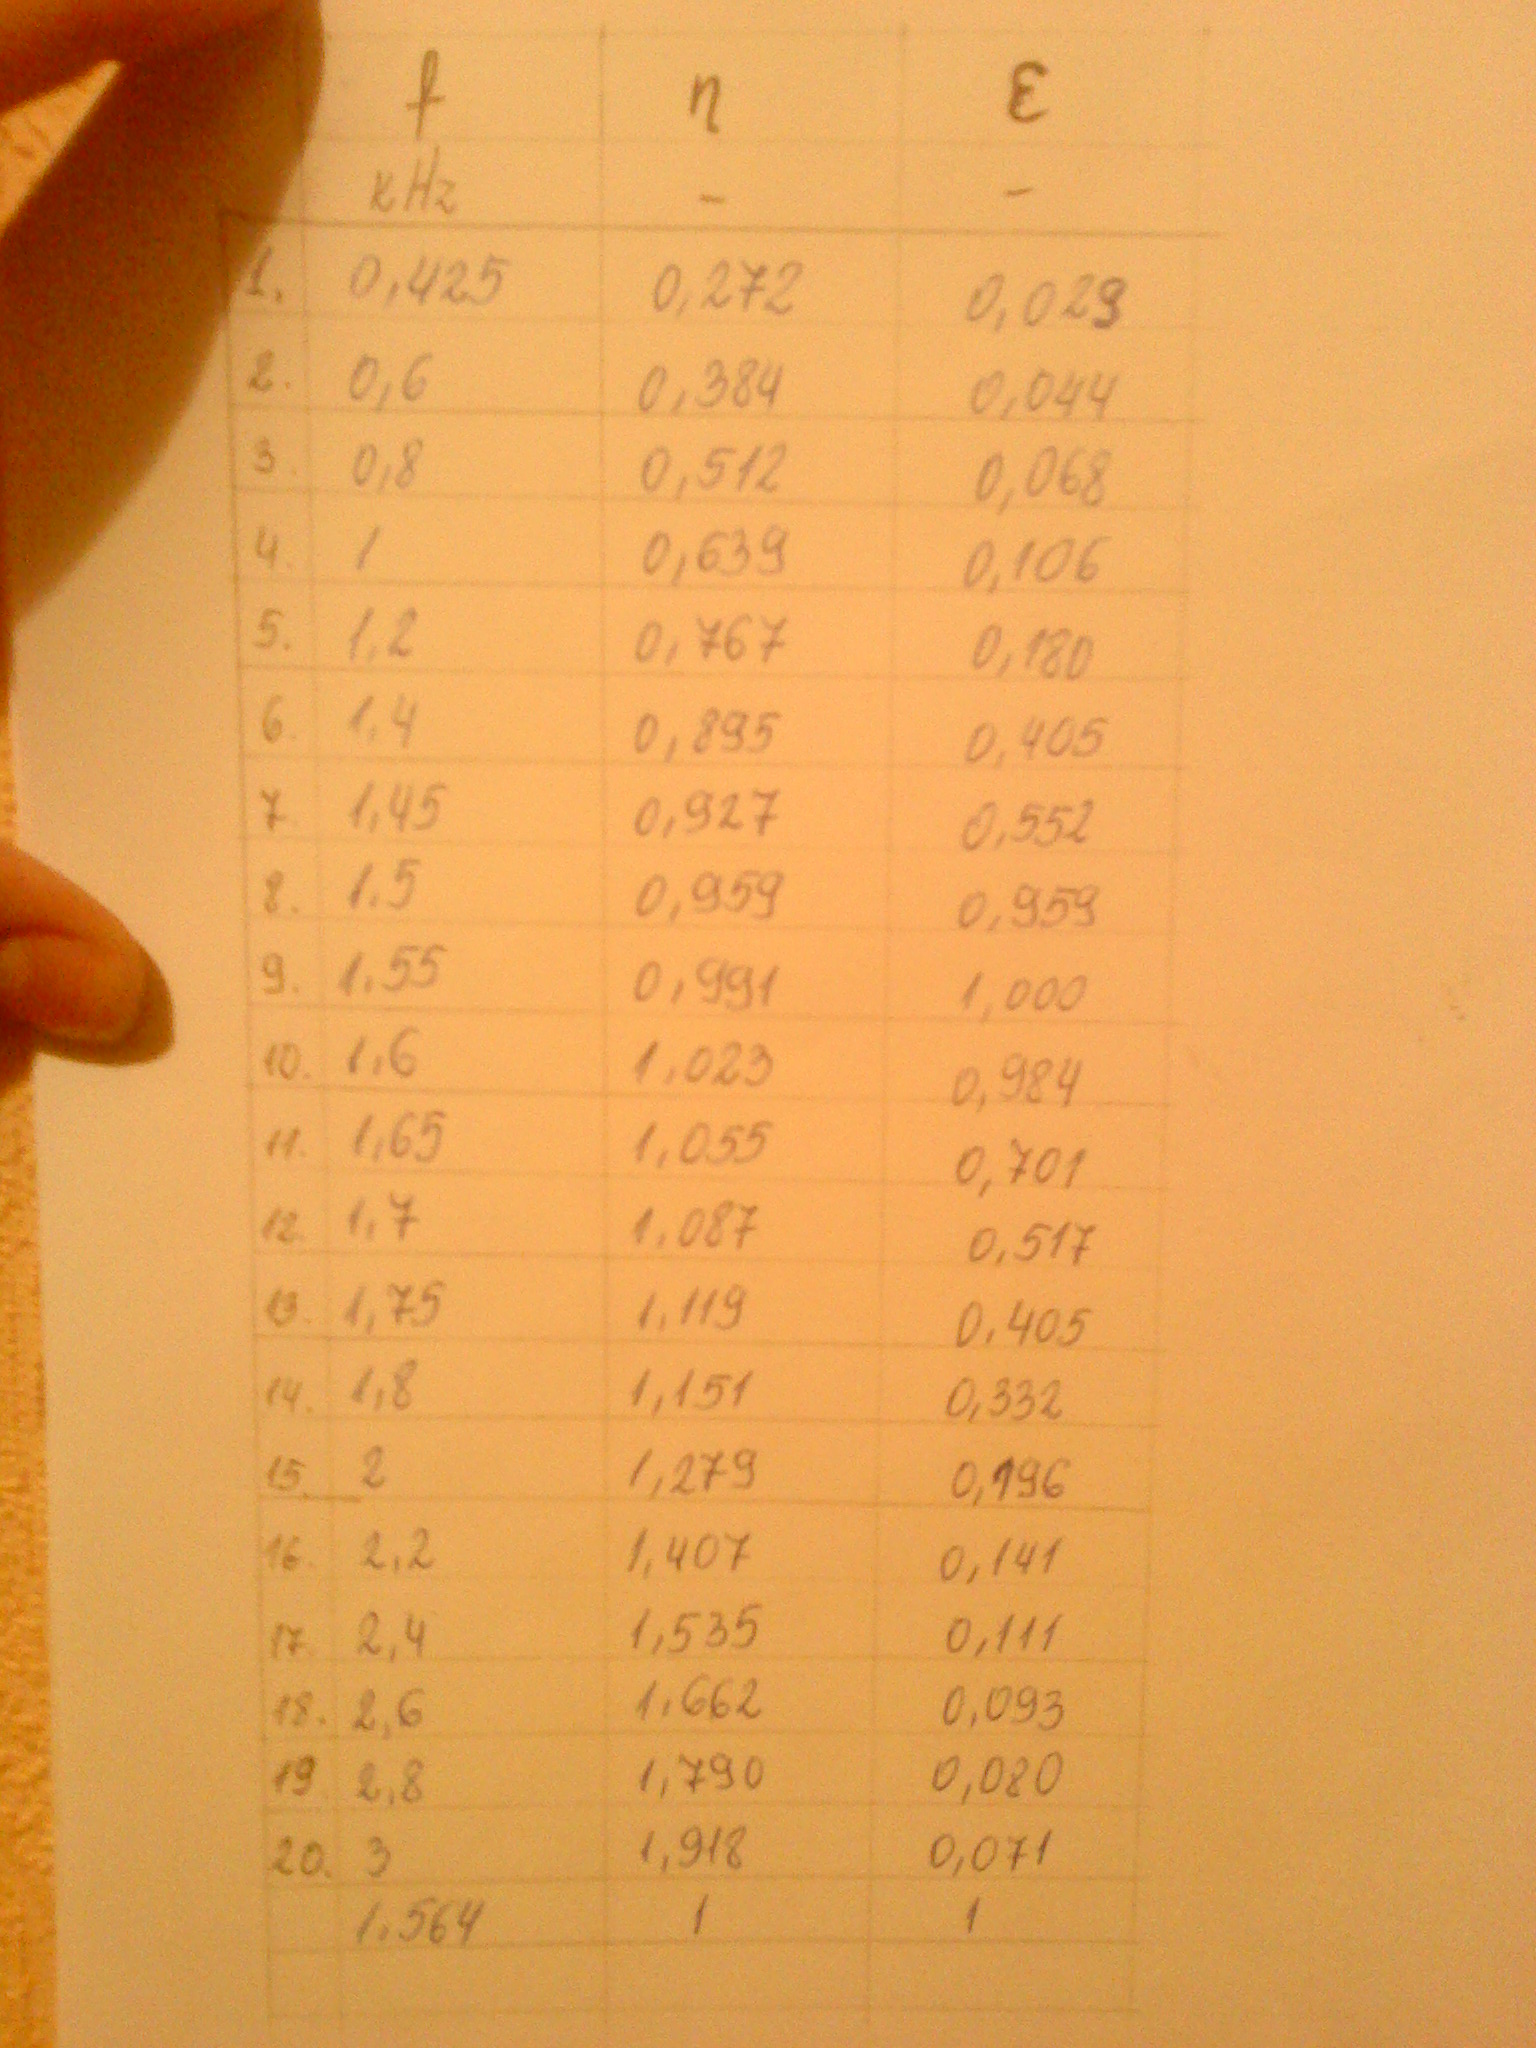 f η ε
kHz - -
1. 0,425 0,272 0,029
2. 0,6 0,384 0,044
3. 0,8 0,512 0,068
4. 1 0,639 0,106
5. 1,2 0,767 0,180
6. 1,4 0,895 0,405
7. 1,45 0,927 0,552
8. 1.5 0,959 0,959
9. 1.55 0,991 1,000
10. 1,6 1.023 0,984
11. 1,65 1,055 0,701
12. 1,7 1.087 0,517
13. 1,75 1.119 0,405
14. 1,8 1,151 0,332
15. 2 1,279 0,196
16. 2,2 1,407 0,141
17. 2,4 1,535 0,111
18. 2,6 1.662 0,093
19. 2,8 1,790 0,080
20. 3 1,918 0,071
1.564 1 1